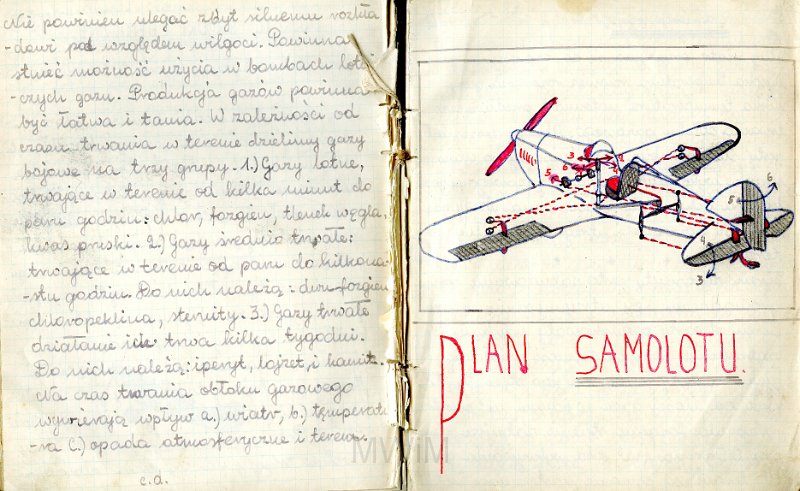 Nie powinien ulegać zbyt silnemu rozkła
-dowi pod względem wilgoci. Powinna
stnieć możność użycia w bombach lotni
-czych gazu. Produkcja gazów powinna
być łatwa i tania. W zależności od
czasu trwania w terenie dzielimy gazy
bojowe na trzy grupy. 1.) Gazy lotne,
trwające w terenie od kilku minut do
paru godzin: chlor, fozgien, tlenek węgla,
kwas pruski. 2.) Gazy średnio trwałe:
trwające w terenie od paru do kilkona-
stu godzin. Do nich należą: dwufozgien
chloropiklina, sternity. 3.) Gazy trwałe
działanie ich trwa kilka tygodni.
Do nich należą: iperyt, luizet, i
Na czas trwania obłoku gazowego
wywierają wpływ a.) wiatr, b.) temperatu
-ra c.) opada atmosferyczne i teren.
c.d.
3
2
6
5
6
5
4
3
PLAN SAMOLOTU.
MWiM